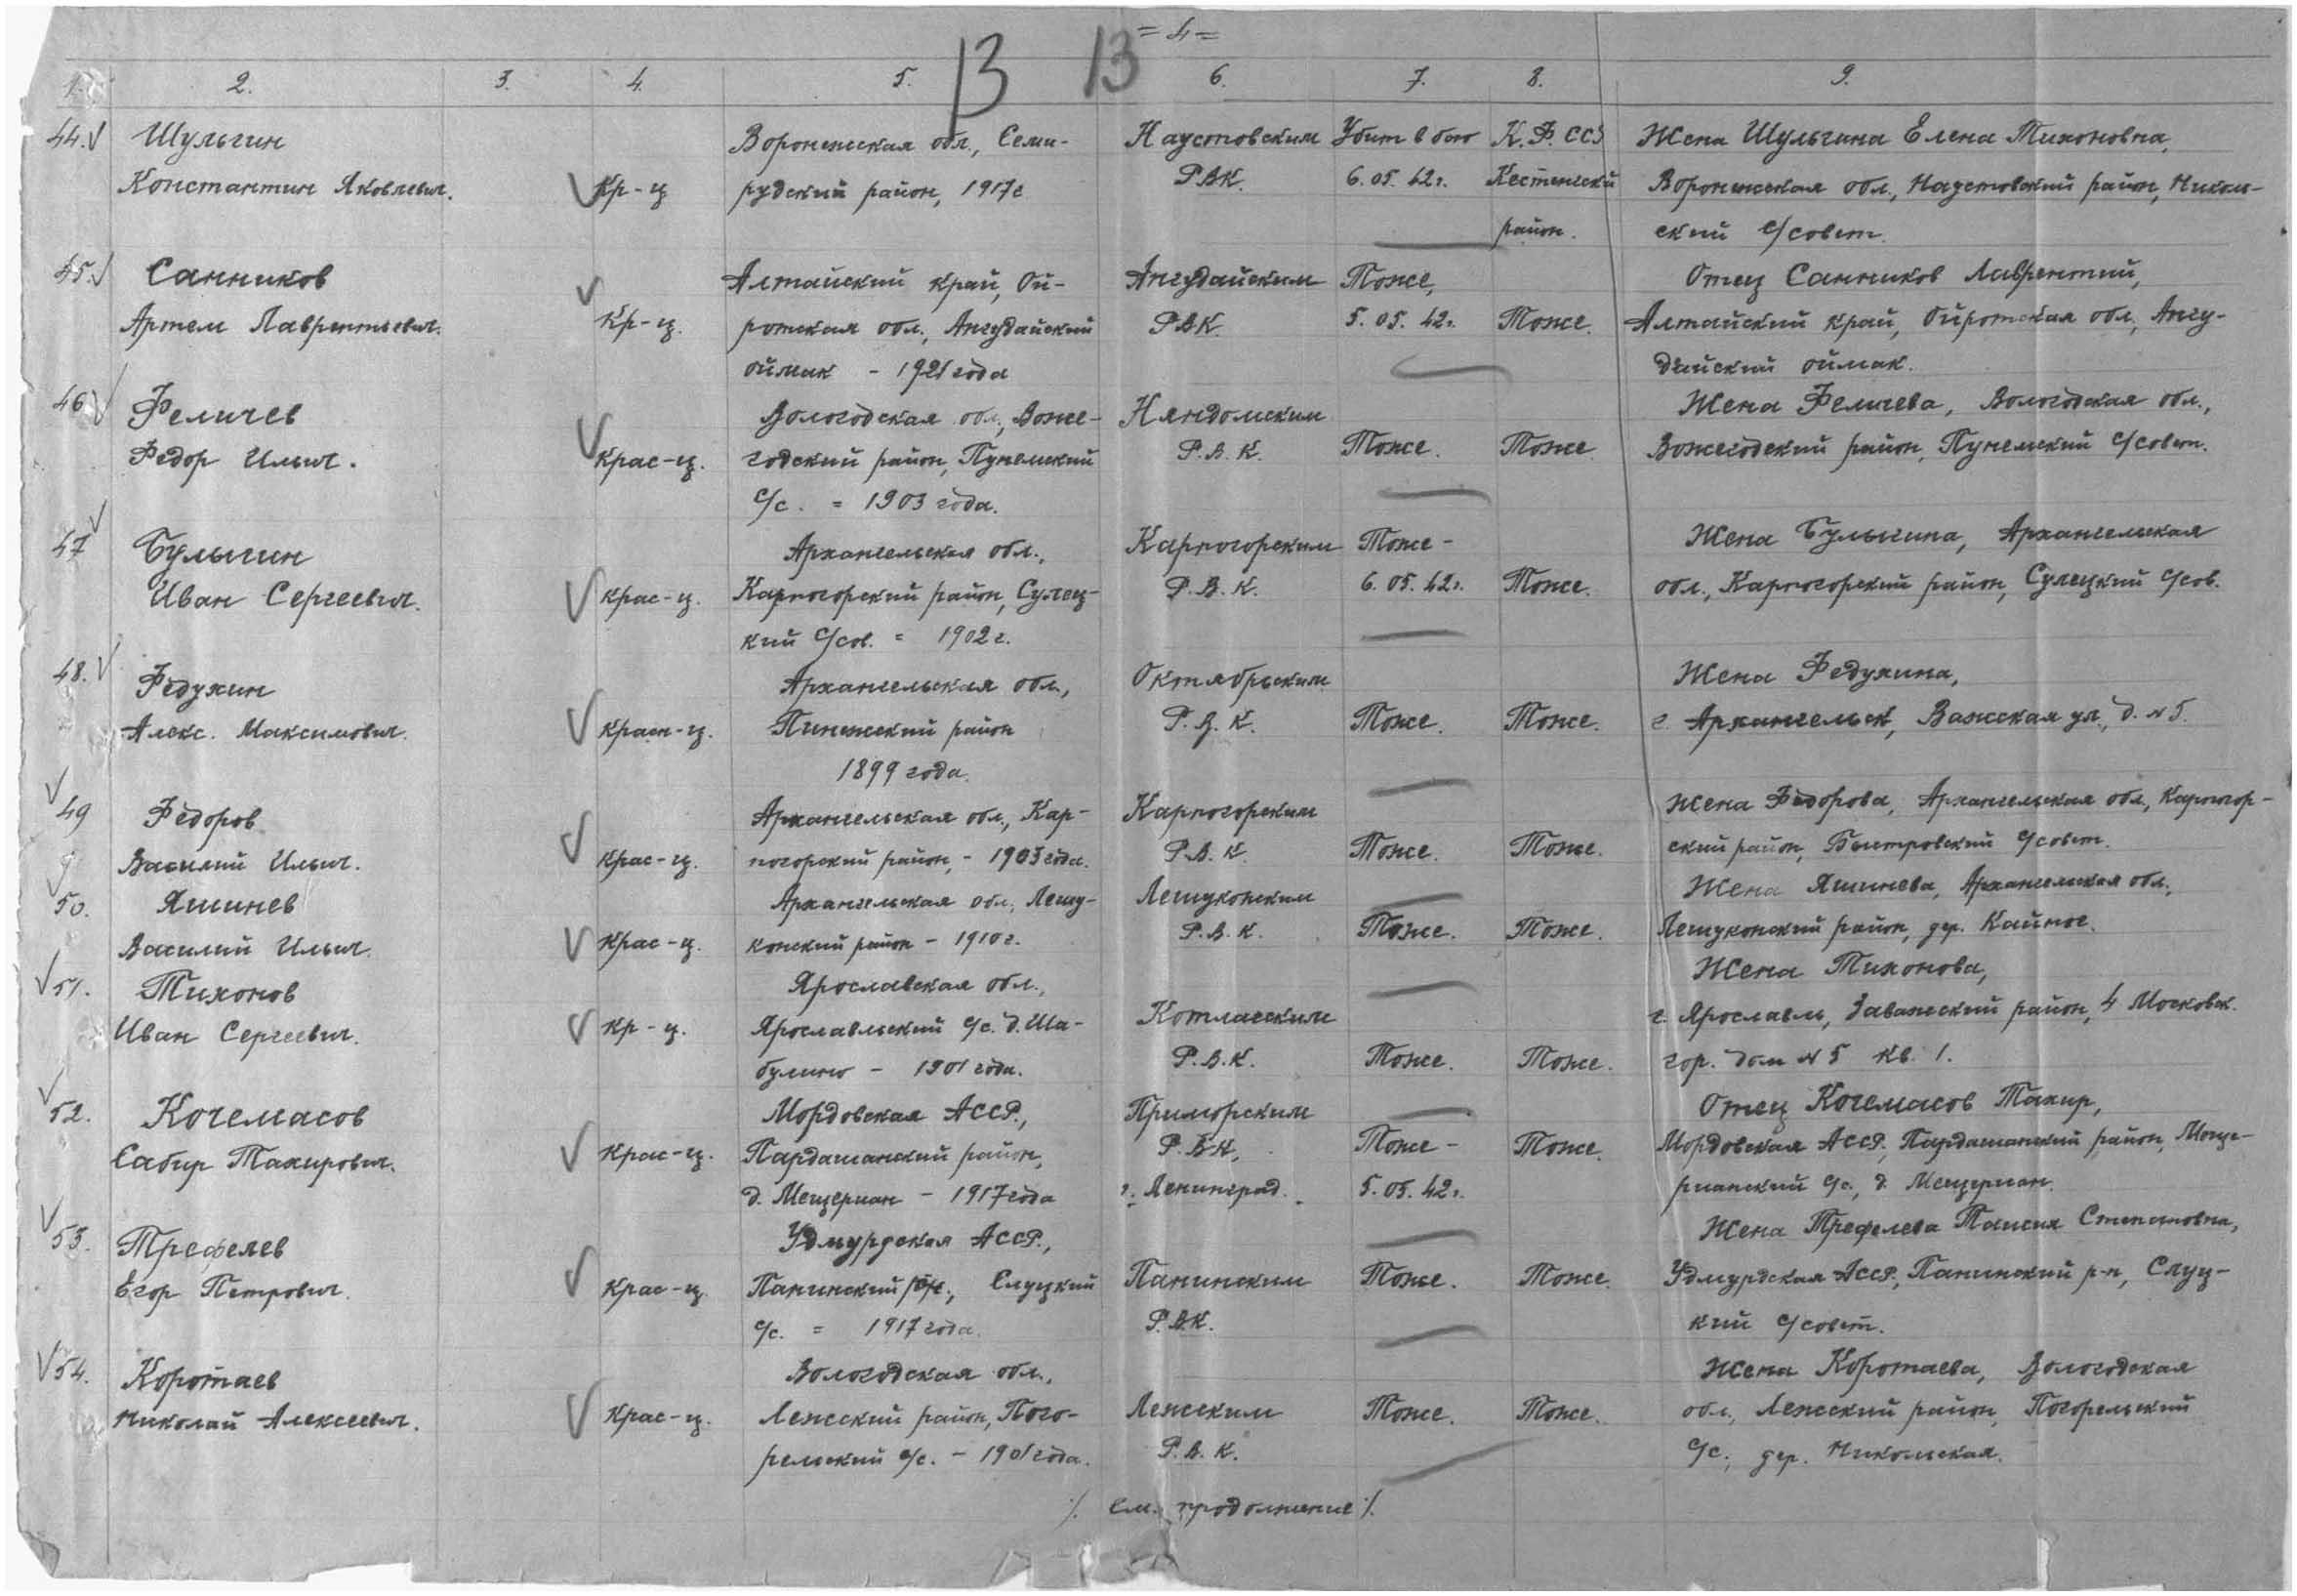 = 4 =
13 13
1. 2. 3. 4. 5. 6. 7. 8. 9.
44. Шульгин Воронежская обл., Семи- Наустовским Убит в бою К.Ф.ССР Жена Шульгина Елена Тихоновна,
Константин Яковлевич. Кр-ц рудский район, 1917г РВК. 6.05.42г. Кестенгский Воронежская обл., Наустовский район, Николь-
район. ский с/совет.
45. Санников Алтайский край, Ой- Ангудайским Тоже, Отец Санников Лаврентий,
Артем Лаврентьевич. Кр-ц. ротская обл., Ангудайский РВК. 5.05.42г. Тоже. Алтайский край, Ойротская обл., Ангу-
оймак - 1921 года дайский оймак.
46. Феличев Вологодская обл., Воже- Няндомским Жена Феличева, Вологодская обл.,
Федор Ильич. Крас-ц. годский район, Пунемский Р.В.К. Тоже. Тоже Вожегодский район, Пунемский с/совет.
с/с. = 1903 года.
47 Булыгин Архангельская обл., Карпогорским Тоже - Жена Булыгина, Архангельская
Иван Сергеевич. Крас-ц. Карпогорский район, Сулец- Р.В.К. 6.05.42г. Тоже. обл., Карпогорский район, Сулецкий с/сов.
кий с/сов. = 1902 г.
48. Федухин Архангельская обл., Октябрьским Жена Федухина,
Алекс. Максимович. Красн-ц. Пинежский район Р.В.К. Тоже. Тоже. г. Архангельск, Важская ул., д. №5.
1899 года.
49 Федоров Архангельская обл., Кар- Карпогорским Жена Федорова, Архангельская обл., Карпогор-
Василий Ильич. Крас-ц. погорский район, - 1903 года. Р.В.К. Тоже. Тоже. ский район, Быстровский с/совет.
50. Яшинев Архангельская обл., Лешу- Лешуконским Жена Яшинева, Архангельская обл.,
Василий Ильич. Крас-ц. конский район - 1910 г. Р.В.К. Тоже. Тоже. Лешуконский район, дер. Кайное.
51. Тихонов Ярославская обл., Жена Тихонова,
Иван Сергеевич. Кр-ц. Ярославльский с/с. д. Ша- Котласским г. Ярославль, Заважский район, 4 Московск.
булино - 1901 года. Р.В.К. Тоже. Тоже. гор. дом №5 кв. 1.
52. Кочемасов Мордовская АССР., Приморским Отец Кочемасов Тахир,
Сабир Тахирович. Крас-ц. Пардашанский район, Р.В.К. Тоже - Тоже. Мордовская АССР, Пардашанский район, Меще-
д. Мещериан - 1917 года г. Ленинград. 5.05.42г. рианский с/с., д. Мещериан.
53. Трефелев Удмурдская АССР., Жена Трефелева Таисия Степановна,
Егор Петрович. Крас-ц. Панинский, Слуцкий Панинским Тоже. Тоже. Удмурдская АССР, Панинский р-н, Слуц-
с/с. = 1917 года. Р.В.К. кий с/совет.
54. Коротаев Вологодская обл., Жена Коротаева, Вологодская
Николай Алексеевич. Крас-ц. Лежский район, Пого- Лежским Тоже. Тоже. обл., Лежский район, Погорельский
рельский с/с. - 1901 года. Р.В.К. с/с., дер. Никольская.
./. см. продолжение ./.